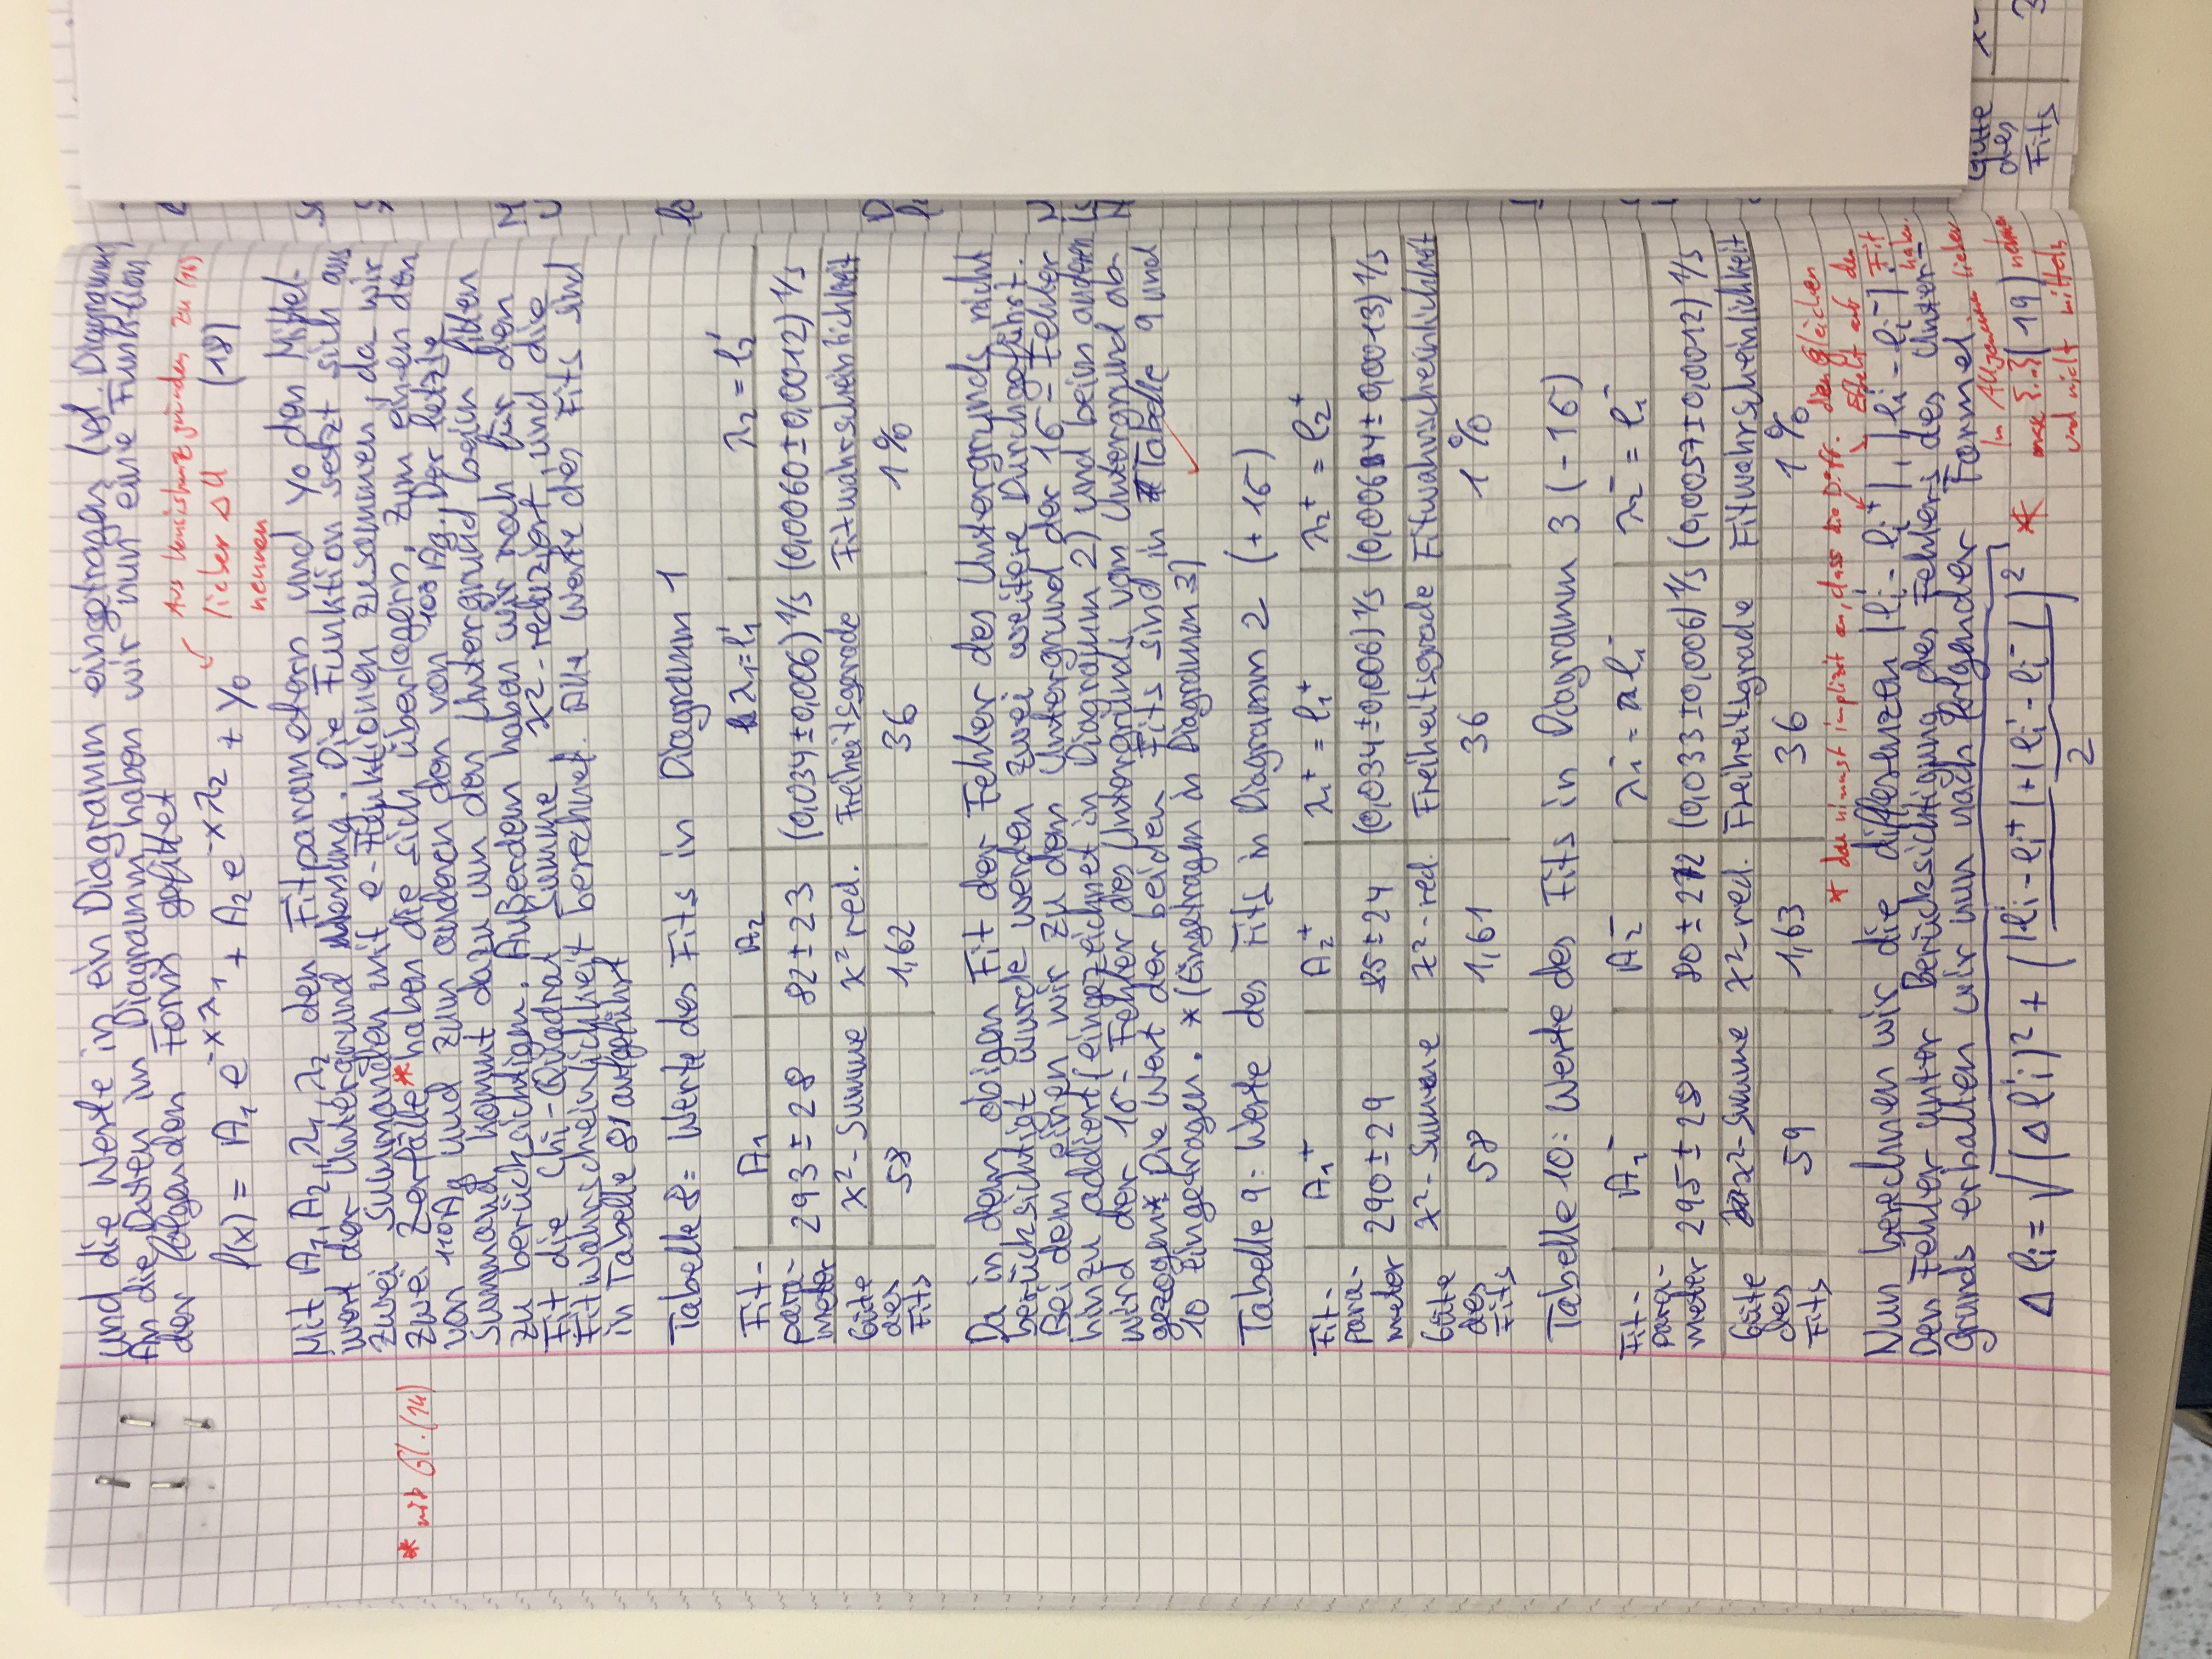 und die Werte in ein Diagramm eingetragen (vgl. Diagramm
An die Daten im Diagramm haben wir nun eine Funktion
der folgenden Form gefittet
Aus Konsistenzgründen zu (16)
lieber ΔU
nennen
f(x) = A₁ e^(-xλ₁) + A₂ e^(-xλ₂) + y₀ (18)
Mit A₁, A₂, λ₁, λ₂ den Fitparametern und y₀ den Mittel-
wert der Untergrund Messung. Die Funktion setzt sich aus
zwei Summanden mit e-Funktionen zusammen, da wir
* mit Gl. (14)
zwei Zerfälle * haben die sich überlagern. Zum einen den
von ¹¹⁰Ag und zum anderen den von ¹⁰⁸Ag. Der letzte
Summand kommt dazu um den Untergrund beim fitten
zu berücksichtigen. Außerdem haben wir noch für den
Fit die Chi-Quadrat Summe, χ²-reduziert und die
Fitwahrscheinlichkeit berechnet. Alle Werte des Fits sind
in Tabelle 8 aufgeführt
Tabelle 8: Werte des Fits in Diagramm 1
Fit-parameter A₁ A₂ λ₁=l₁' λ₂=l₂'
293 ± 28 82 ± 23 (0,034 ± 0,006) 1/s (0,0060 ± 0,0012) 1/s
Güte des Fits χ²-Summe χ² red. Freiheitsgerade Fitwahrscheinlichkeit
58 1,62 36 1%
Da in dem obigen Fit der Fehler des Untergrunds nicht
berücksichtigt wurde werden zwei weitere Durchgeführt.
Bei dem einen wir zu dem Untergrund der 1σ-Fehler
hinzu addiert (eingezeichnet in Diagramm 2) und beim anderen
wird der 1σ-Fehler des Untergrunds vom Untergrund ab-
gezogen*. Die Wert der beiden Fits sind in Tabelle 9 und
10 eingetragen. *(Eingetragen in Diagramm 3)
Tabelle 9: Werte des Fits in Diagramm 2 (+1σ)
Fit-parameter A₁⁺ A₂⁺ λ₁⁺ = l₁⁺ λ₂⁺ = l₂⁺
290 ± 29 85 ± 24 (0,034 ± 0,006) 1/s (0,0064 ± 0,0013) 1/s
Güte des Fits χ²-Summe χ²-red. Freiheitsgrade Fitwahrscheinlichkeit
58 1,61 36 1%
Tabelle 10: Werte des Fits in Diagramm 3 (-1σ)
Fit-parameter A₁⁻ A₂⁻ λ₁⁻ = l₁⁻ λ₂⁻ = l₁⁻
295 ± 28 80 ± 22 (0,033 ± 0,006) 1/s (0,0057 ± 0,0012) 1/s
Güte des Fits χ²-Summe χ²-red. Freiheitsgrade Fitwahrscheinlichkeit
59 1,63 36 1%
* das nimmst implizit an, dass die Diff. den Gleichen
Effekt auf den
Fit
haben.
Nun berechnen wir die differenzen |lᵢ' - lᵢ⁺|, |lᵢ' - lᵢ⁻|.
Den Fehler unter Berücksichtigung des Fehlers des Unter-
grunds erhalten wir nun nach folgender Formel
Δlᵢ = √((Δlᵢ')² + ((|lᵢ' - lᵢ⁺| + |lᵢ' - lᵢ⁻|)/2)²) * (19)
Im Allgemeinen lieber
max {...} nehmen
und nicht mitteln
Güte
des
Fits